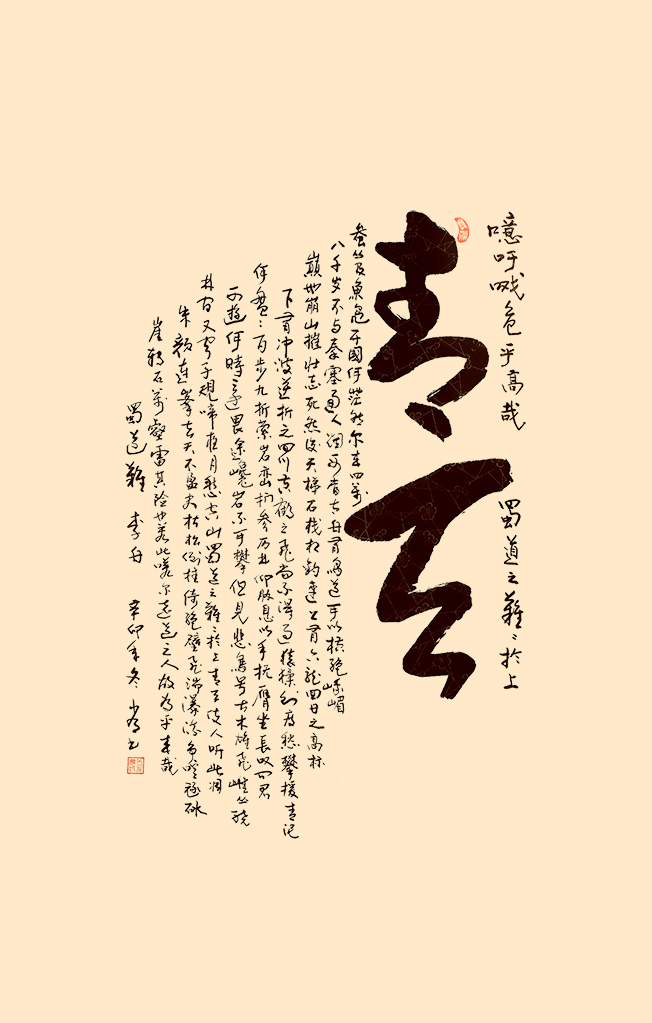 噫吁戏危乎高哉
蜀道之难難於上
青天
蚕丛及鱼凫开國何茫然尔来四萬
八千岁不与秦塞通人烟西当太白有鸟道可以横绝峨嵋
巅地崩山摧壮士死然後天梯石栈相钩連上有六龙回日之高标
下有冲波逆折之回川黄鹤之飞尚不得过猿猱欲度愁攀援青泥
何盘盘百步九折萦岩峦扪参历井仰胁息以手抚膺坐长叹问君
西遊何時还畏途巉岩不可攀但见悲鸟号古木雄飛雌从绕
林间又闻子规啼夜月愁空山蜀道之难難於上青天使人听此凋
朱颜连峯去天不盈尺枯松倒挂倚绝壁飛湍瀑流争喧豗砯
崖转石萬壑雷其险也若此嗟尔远道之人胡为乎来哉
蜀道難 李白 辛卯年冬